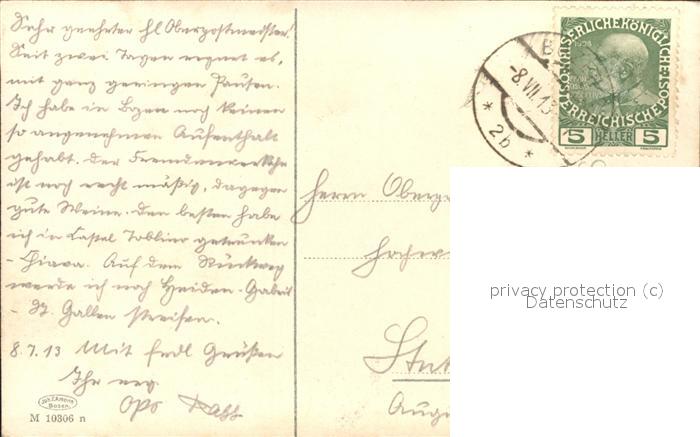 Sehr geehrter Hl Oberpostmeister!
Seit zwei Tagen regnet es,
mit ganz geringen Pausen.
Ich habe in Bozen noch keinen
so angenehmen Aufenthalt
gehabt. Der Fremdenverkehr
ist noch recht mäßig, dagegen
gute Weine. Den besten habe
ich in Castel Toblino getrunken
- Chiava. Auf dem Rückweg
werde ich noch Heiden-Gabris
- St. Gallen streifen.
8.7.13 Mit frdl Grüßen
Ihr erg.
Ops
M 10306 n
Bozen.
-8.VII.13
* 2b *
1908
KAISERLICHE KÖNIGLICHE
ÖSTERREICHISCHE POST
5 HELLER 5
Herrn Oberp
Hochw
Stut
Aug
privacy protection (c)
Datenschutz